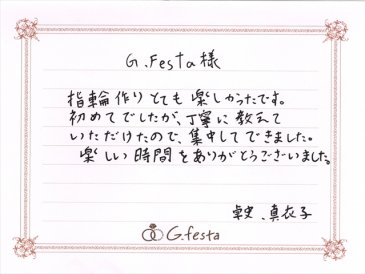 G.Festa様
指輪作りとても楽しかったです。
初めてでしたが、丁寧に教えて
いただけたので、集中してできました。
楽しい時間をありがとうございました。
卓史、真衣子
G.festa